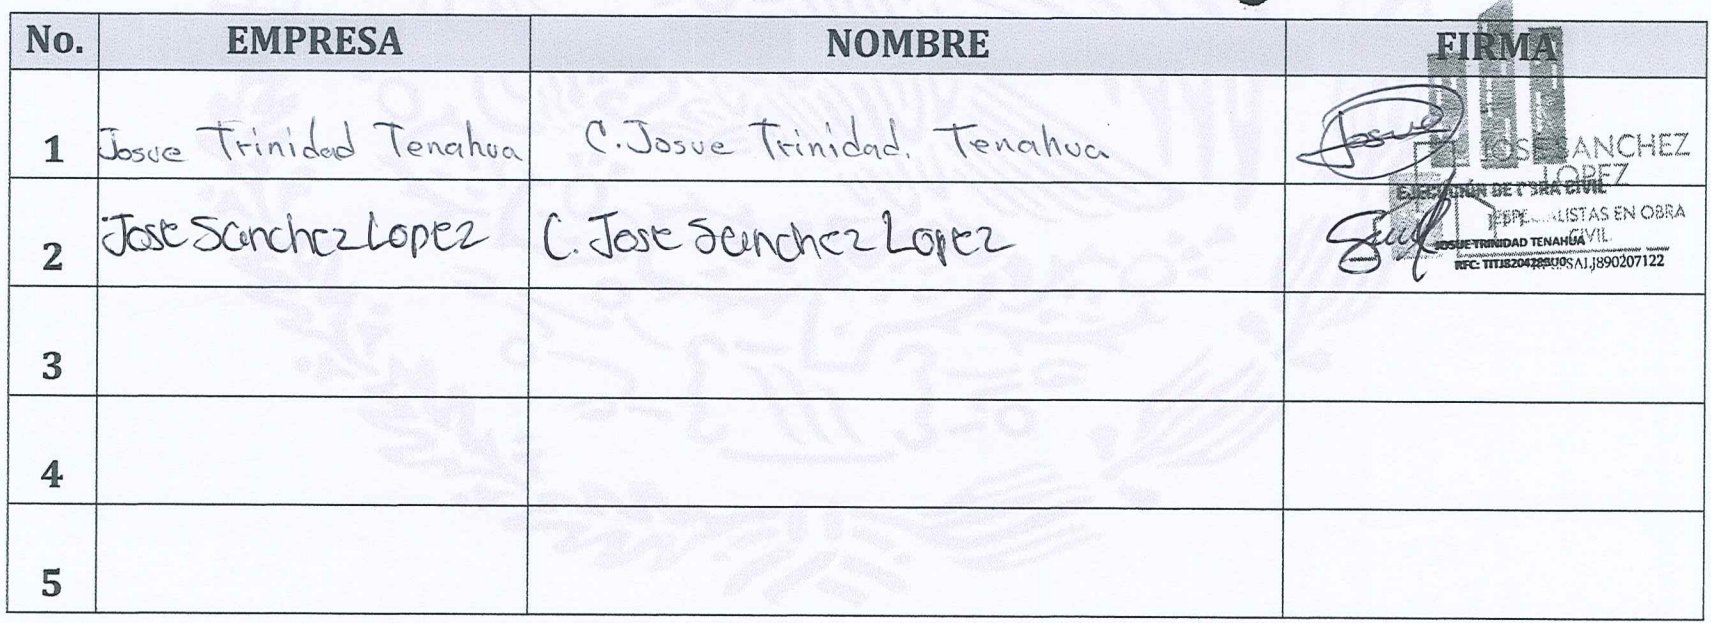 No. EMPRESA NOMBRE FIRMA
1 Josue Trinidad Tenahua C. Josue Trinidad. Tenahua Josue
JOSE SANCHEZ
LOPEZ
EJECUCIÓN DE OBRA CIVIL
2 Jose Sanchez Lopez C. Jose Sanchez Lopez
ESPECIALISTAS EN OBRA
CIVIL.
JOSUE TRINIDAD TENAHUA
RFC: SALJ890207122
3
4
5